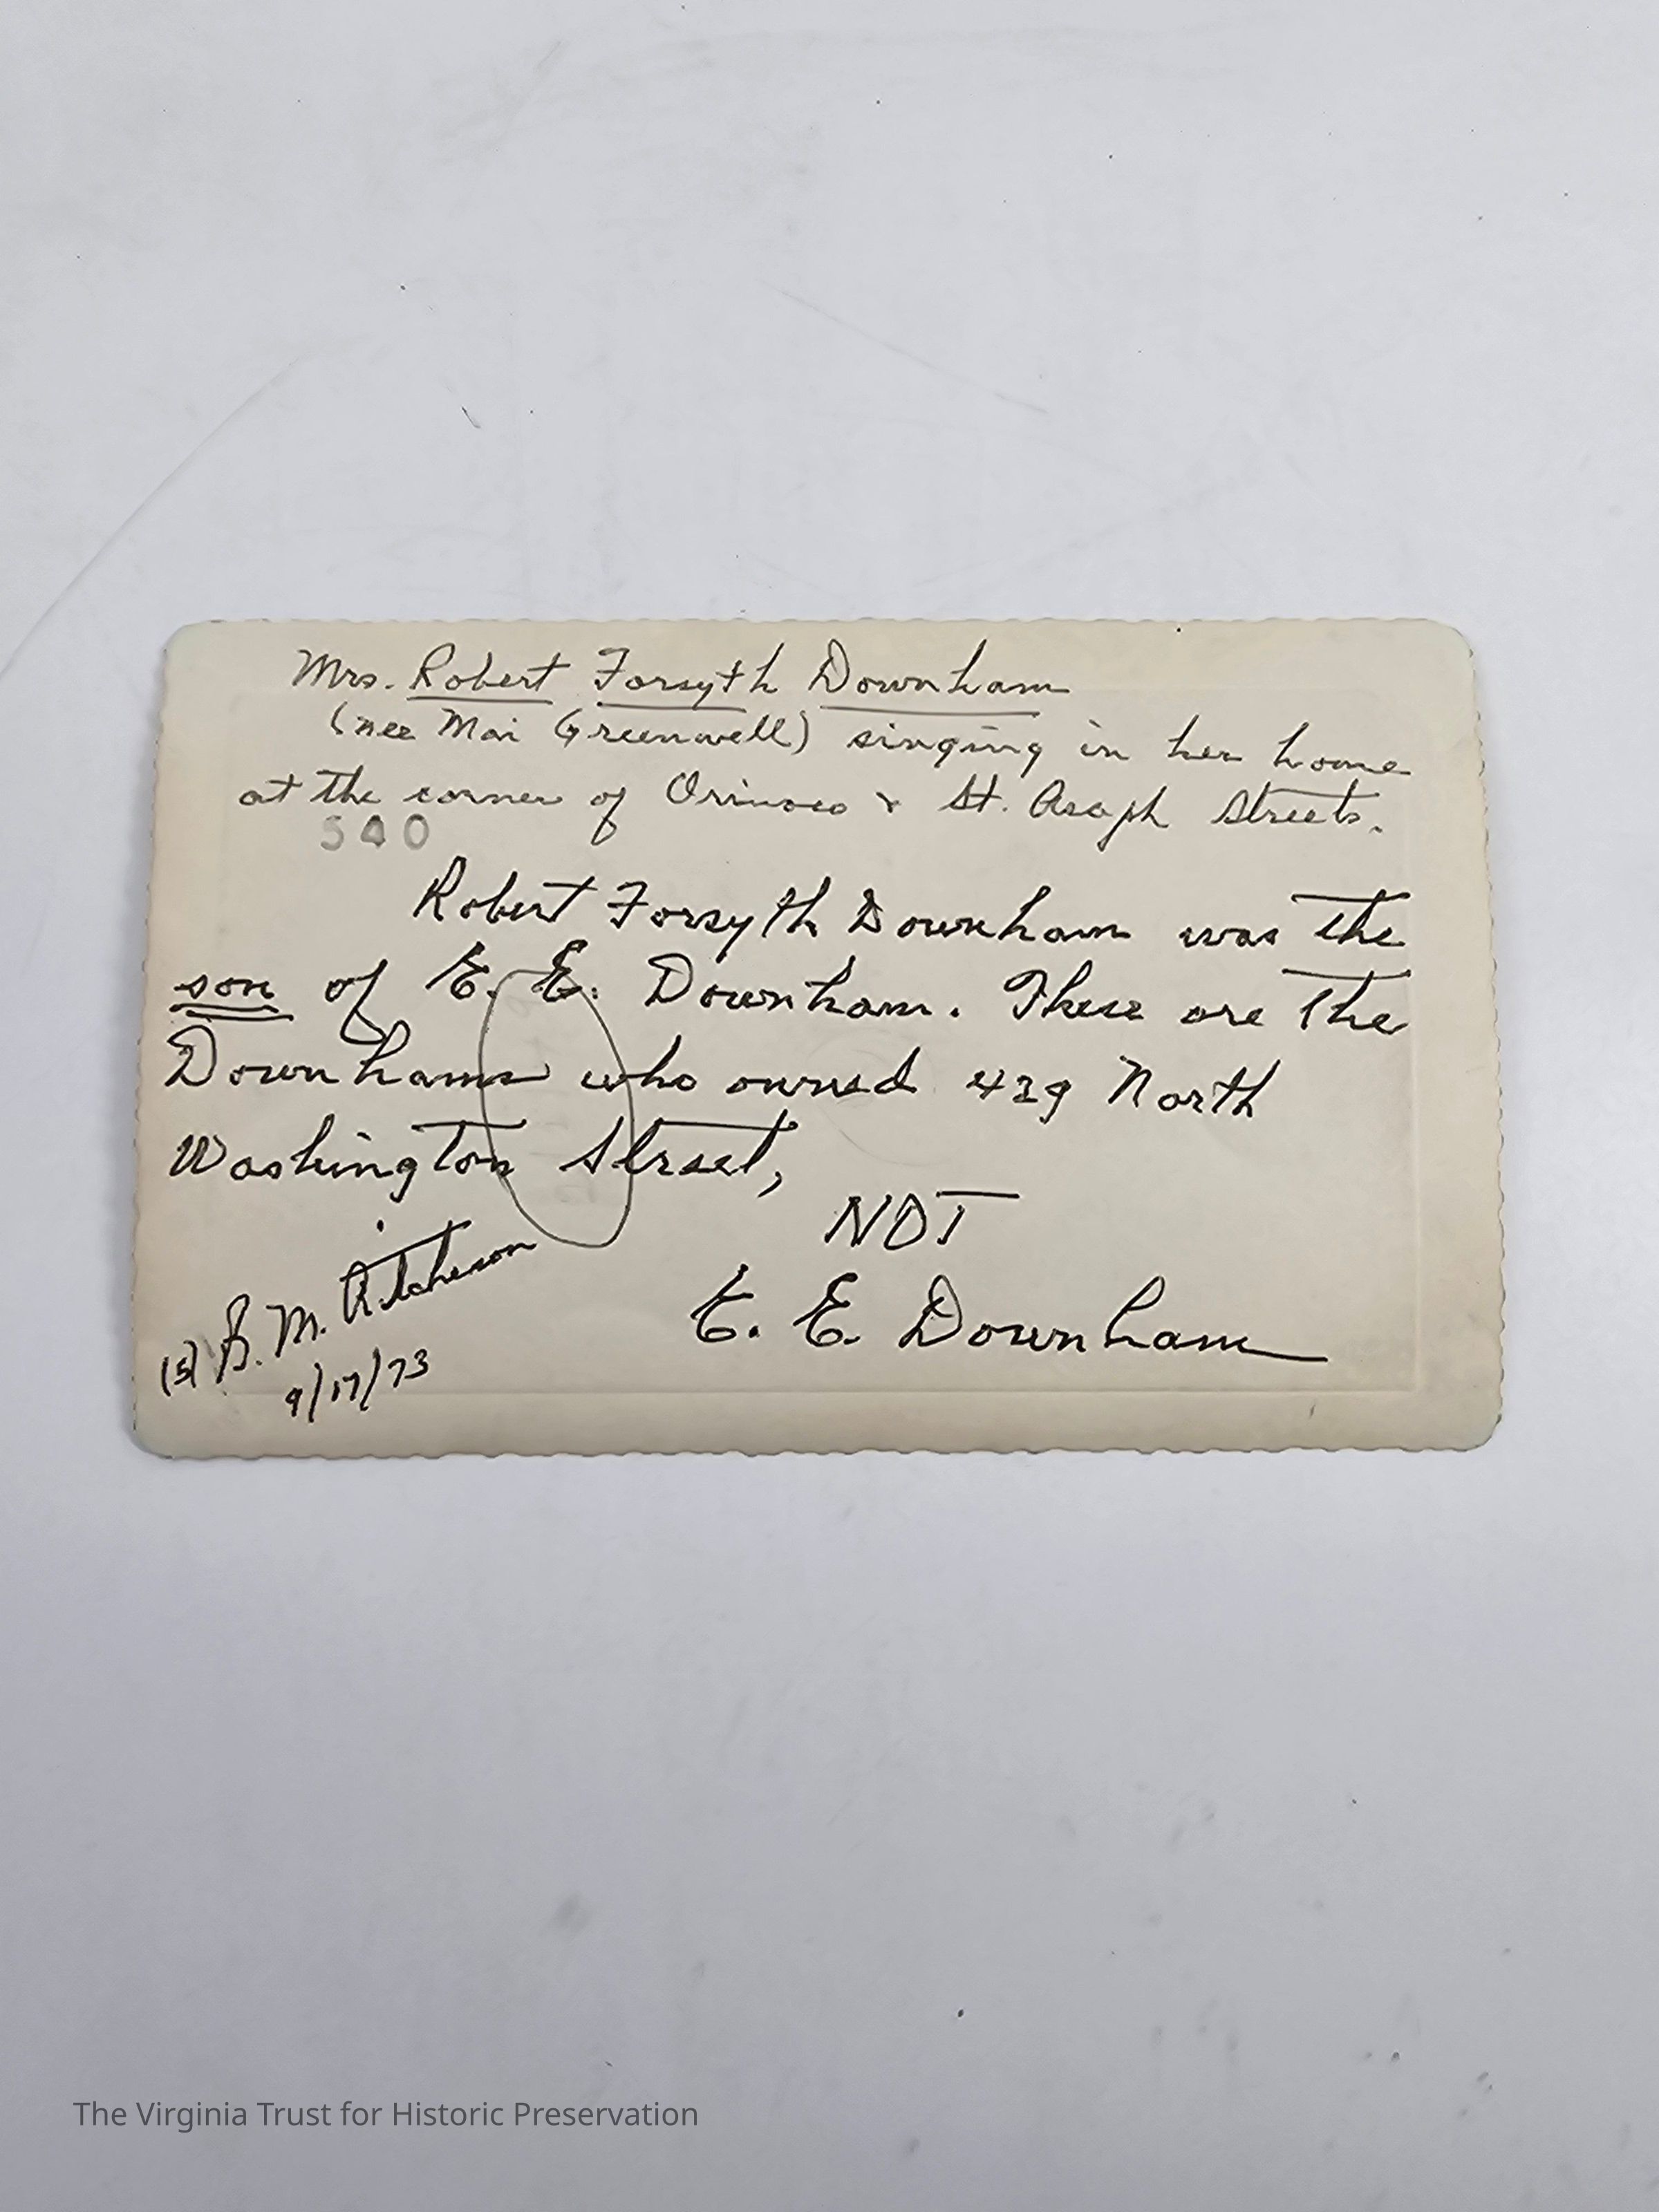 Mrs. Robert Forsyth Downham
(nee Mai Greenwell) singing in her home
at the corner of Orinoco & St. Asaph Streets.
540
Robert Forsyth Downham was the
son of E. E. Downham. These are the
Downhams who owned 429 North
Washington Street,
NOT
E. E. Downham
(s) B. M. Aitcheson
9/17/73
The Virginia Trust for Historic Preservation